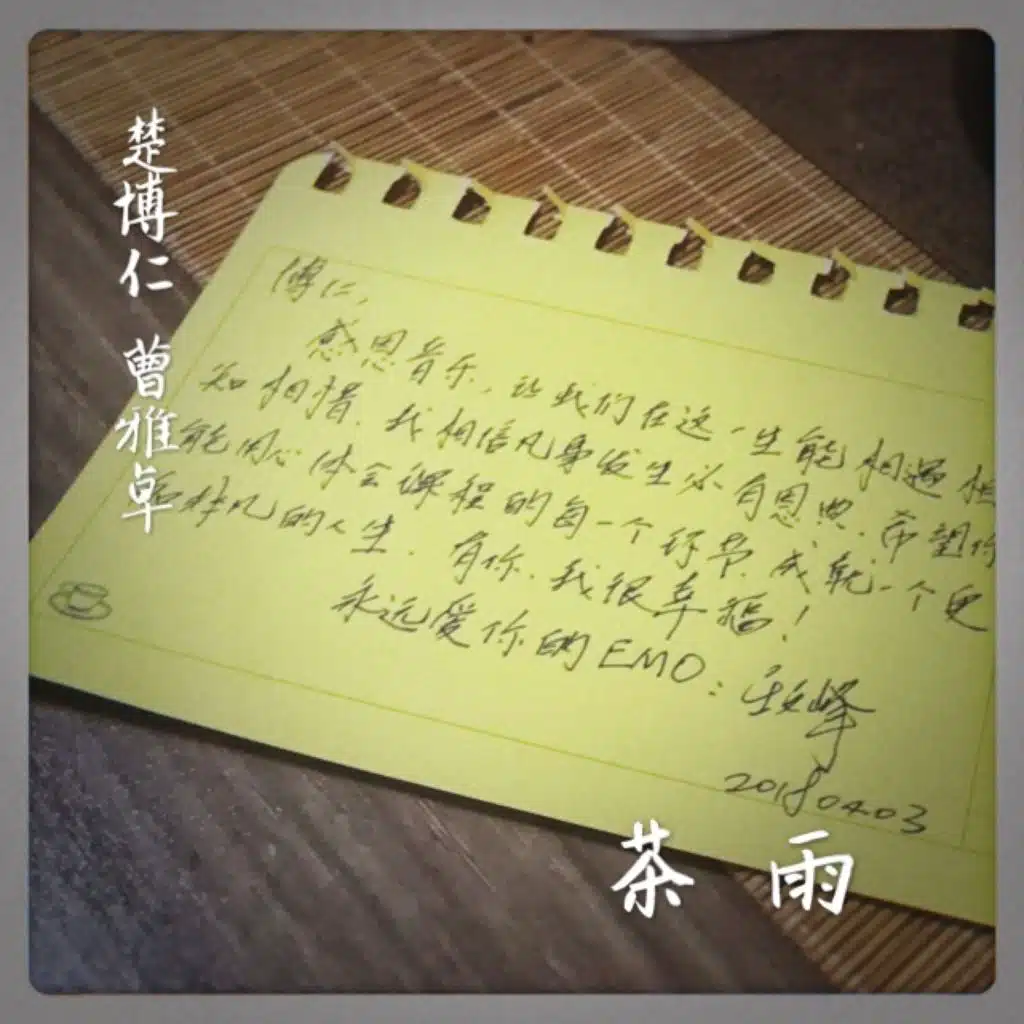 楚博仁 曹雅卓
博仁,
感恩音乐,让我们在这一生能相遇相
知相惜.我相信凡事发生必有恩典.希望你
能用心体会课程的每一个环节.成就一个更
不凡的人生.有你.我很幸福!
永远爱你的EMO:
20180403
茶 雨